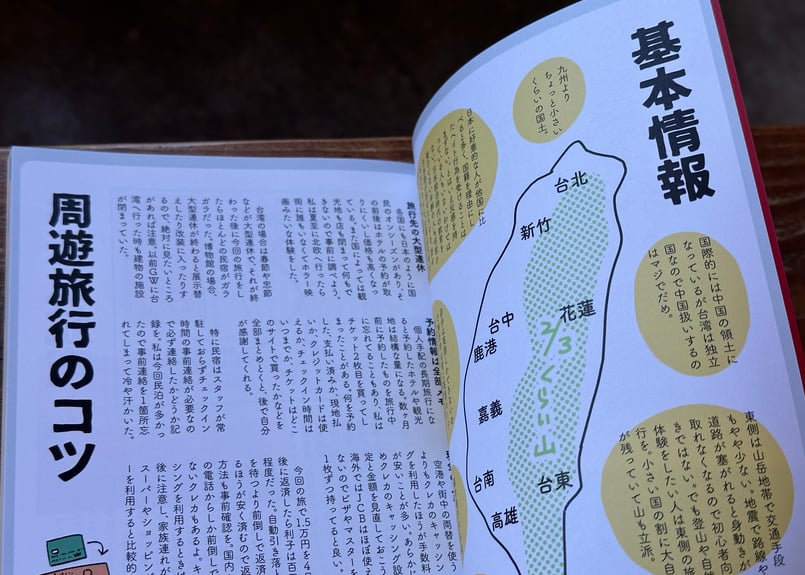 基本情報
九州より
ちょっと小さい
くらいの国土。
国際的には中国の領土に
なっているが台湾は独立
国なので中国扱いするの
はマジでだめ。
東側は山岳地帯で交通手段
もやや少ない。地震で路線や
道路が塞がれると身動きが
取れなくなるので初心者向
きではない。でも登山や自
体験をしたい人は東側の旅
行を。小さい国の割に大自
が残っていて山も立派。
台北
新竹
花蓮
台中
鹿港
2/3くらい山
嘉義
台南
高雄
台東
日本に好意的な人が他国に比
べると多く、国籍を理由にし
たヘイト行為を受けること
周遊旅行のコツ
旅行先の大型連休
各国にも日本のように国
民のオンシーズンがあり、そ
の前後はホテルの予約が取
りにくい上価格も高くなっ
ている。また国によっては観
光地も店も閉まって何もで
きないので事前に調べよう。
私は夏至に北欧へ行ったら
街に誰もいなくてホラー映
画みたいな体験をした。
台湾の場合は春節や忠節
などが大型連休で、それが終
わった後に今回の旅行をし
たらほとんどの民宿がガラ
ガラだった。博物館の場合、
大型連休が終わると展示替
えしたり改装に入ったりす
るので、絶対に見たいところ
があれば注意。以前GWに台
湾へ行った時も建物の施設
が閉まっていた。
予約情報は全部メモ
個人手配の長期旅行にな
ると予約したホテルや観光
地は結構な量になる。数ヶ月
前に予約したものを旅行中
に忘れてることもあり、私は
チケット2枚目を買ってし
まったことがある。何を予約
した、支払い済みか、現地払
いか、クレジットカードは使
えるか、チェックイン時間は
いつまでか、チケットはどこ
のサイトで買ったかなどを
全部まとめとくと、後で自分
が感謝してくれる。
特に民宿はスタッフが常
駐しておらずチェックイン
時間の事前連絡が必要なの
で必ず連絡したかどうか記
録を。私は今回民泊が多かっ
たので事前連絡を1箇所忘
れてしまって冷や汗かいた。
空港や街中の両替を使う
よりもクレカのキャッシン
グを利用したほうが手数料
が安いことが多い。あらかじ
めクレカのキャッシング設
定と金額を見直しておこう
海外ではJCBはほぼ使え
ないのでビザやマスターを
1枚ずつ持ってると良い。
今回の旅で1.5万円を4
後に返済したら利子は百
程度だった。自動引き落と
を待つより前倒しで返済
るほうが安く済むので返
方法も事前確認を。国内
の電話からしか前倒しで
ないクレカもあるよ。キャ
シングを利用するときは
後に注意し、家族連れが
スーパーやショッピング
ーを利用すると比較的